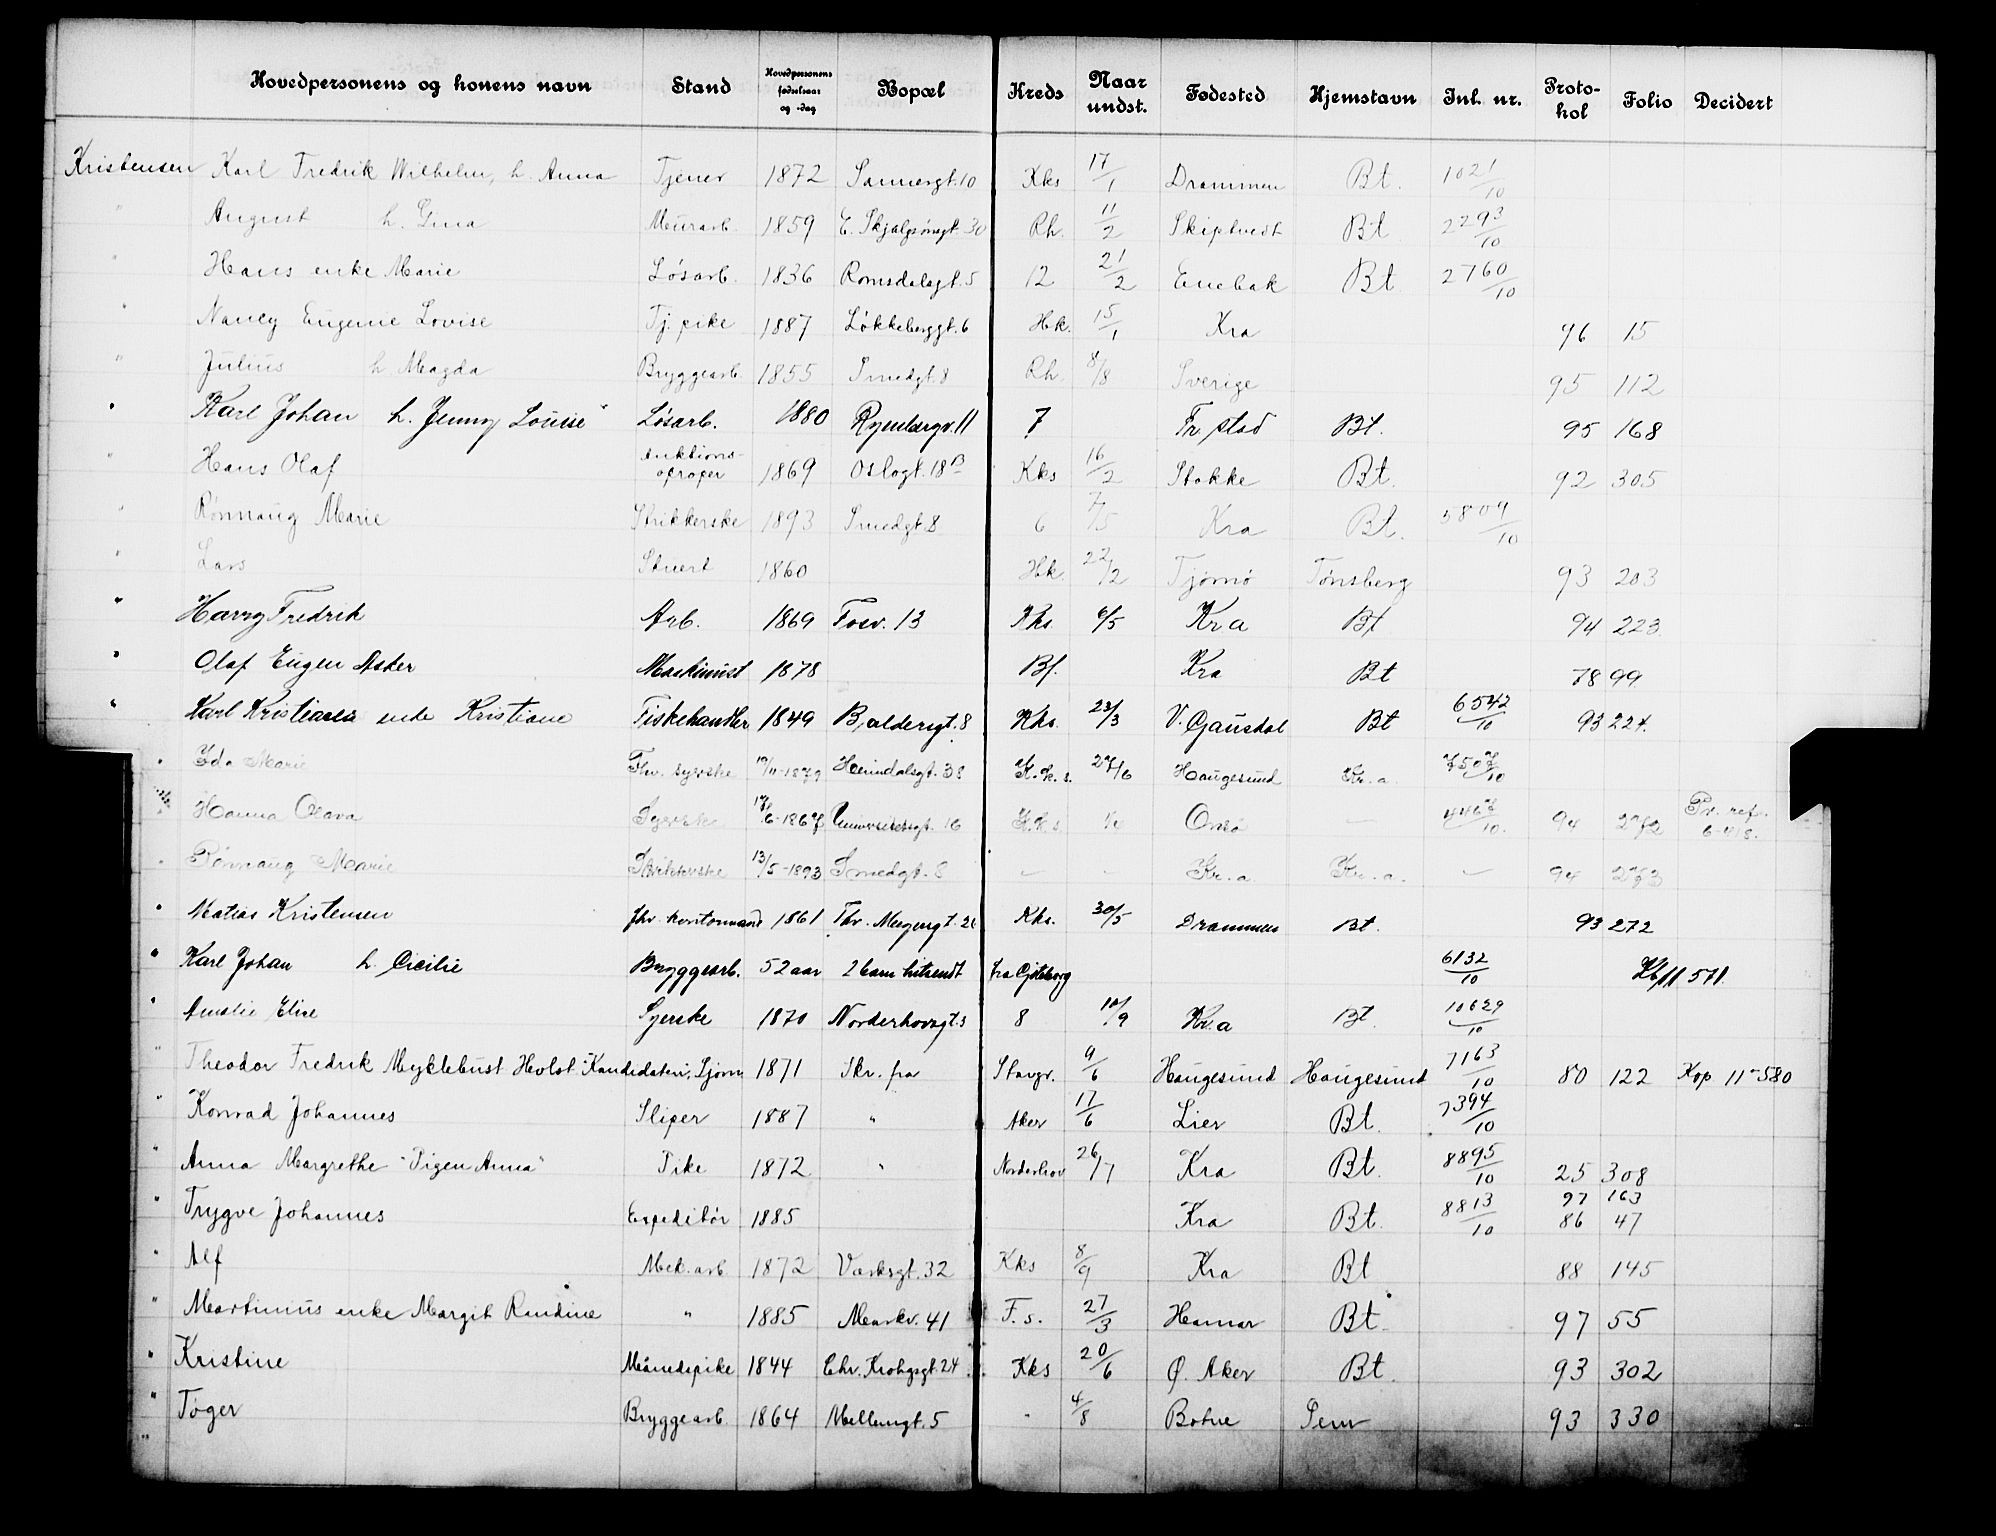 Hovedpersonens og konens navn Stand Hovedpersonens fødselsaar og -dag Bopæl Kreds Naar undst. Fødested Hjemstavn Inl. nr. Protokol Folio Decidert
Kristensen Karl Fredrik Wilhelm, h. Anna Tjener 1872 Sannergt. 10 Kks 17/1 Drammen Bt. 1021/10
" August h. Gina Murarb. 1859 E. Skjalgsønsgt. 30 Rh. 11/2 Skiptvedt Bt 2293/10
" Hans enke Marie Løsarb. 1836 Romsdalsgt. 5 12 21/2 Enebak Bt 2760/10
" Nancy Eugenie Lovise Tj. pike 1887 Løkkeberggt. 6 Hk. 15/1 Kra 96 15
" Julius h Magda Bryggearb. 1855 Smedgt. 8 Rh. 8/8 Sverige 95 112
" Karl Johan h. Jenny Louise Løsarb. 1880 Ryenbergv. 11 7 Fr. stad Bt. 95 168
" Hans Olaf Auktionsoproper 1869 Oslogt. 18 B Kks 16/2 Stokke Bt. 92 305
" Rønnaug Marie Strikkerske 1893 Smedgt. 8 6 7/5 Kra Bt. 5809/10
" Lars Stuert 1860 Hk. 22/2 Tjømø Tønsberg 93 203
" Harry Fredrik Arb. 1869 Fosv. 13 Kks. 6/5 Kra Bt 94 223
" Olaf Eugen Asker Maskinist 1878 Bf. Kra Bt 78 99
" Karl Kristiansen enke Kristiane Fiskehandler 1849 Baldersgt. 8 Kks. 23/3 V. Gausdal Bt 6542/10 93 224.
" Ida Marie Fhv. syerske 19/11-1879 Heimdalsgt. 38 K.k.s. 27/6 Haugesund Kr.a. 7507/10
Hanna Olava Syerske 17/6-1867 Universitetsgt. 16 K.k.s. 1/4 Onsø — 4467/10. 94 272 Pr. ref. 6-418.
" Rønnaug Marie Strikkerske 13/5-1893 Smedgt. 8 — - Kr.a Kr.a. — 94 273
" Matias Kristensen fhv. kontormand 1861 Thv. Meyersgt. 26 Kks. 30/5 Drammen Bt. 93 272
" Karl Johan h. Cicilie Bryggearb. 52 aar 2 barn hitsendt fra Gøteborg 6132/10 Kb 11 571.
" Amalie Elise Syerske 1870 Norderhovsgt. 3 8 10/9 Kr.a Bt 10629/10
" Theodor Fredrik Myklebust Hvolst "Kandidaten", Sjøm. 1871 Skr. fra Stavgr. 9/6 Haugesund Haugesund 7163/10 80 122 Kop 11-580
" Konrad Johannes Sliper 1887 " Aker 17/6 Lier Bt. 7394/10
" Anna Margrethe "Pigen Anna" Pike 1872 " Norderhov 26/7 Kra Bt. 8895/10 25 308
" Trygve Johannes Expeditør 1885 Kra Bt. 8813/10 97 163 86 47
" Alf Mek. arb 1872 Værksgt. 32 Kks 8/9 Kra Bt 88 145
" Martinius enke Margit Randine " 1885 Markv. 41 F.s. 27/3 Hamar Bt 97 55
" Kristine Månedspike 1844 Chr. Krohgsgt 24 Kks 20/6 Ø. Aker Bt. 93 302
" Tøger Bryggearb 1864 Mellemgt. 5 " 4/8 Botne Sem 93 330
"